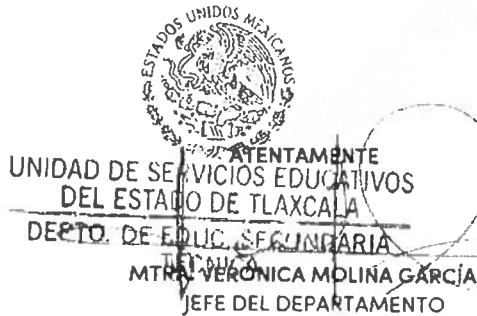 ESTADOS UNIDOS MEXICANOS
ATENTAMENTE
UNIDAD DE SERVICIOS EDUCATIVOS
DEL ESTADO DE TLAXCALA
DEPTO. DE EDUC. SECUNDARIA
TECNICA
MTRA. VERÓNICA MOLINA GARCÍA
JEFE DEL DEPARTAMENTO